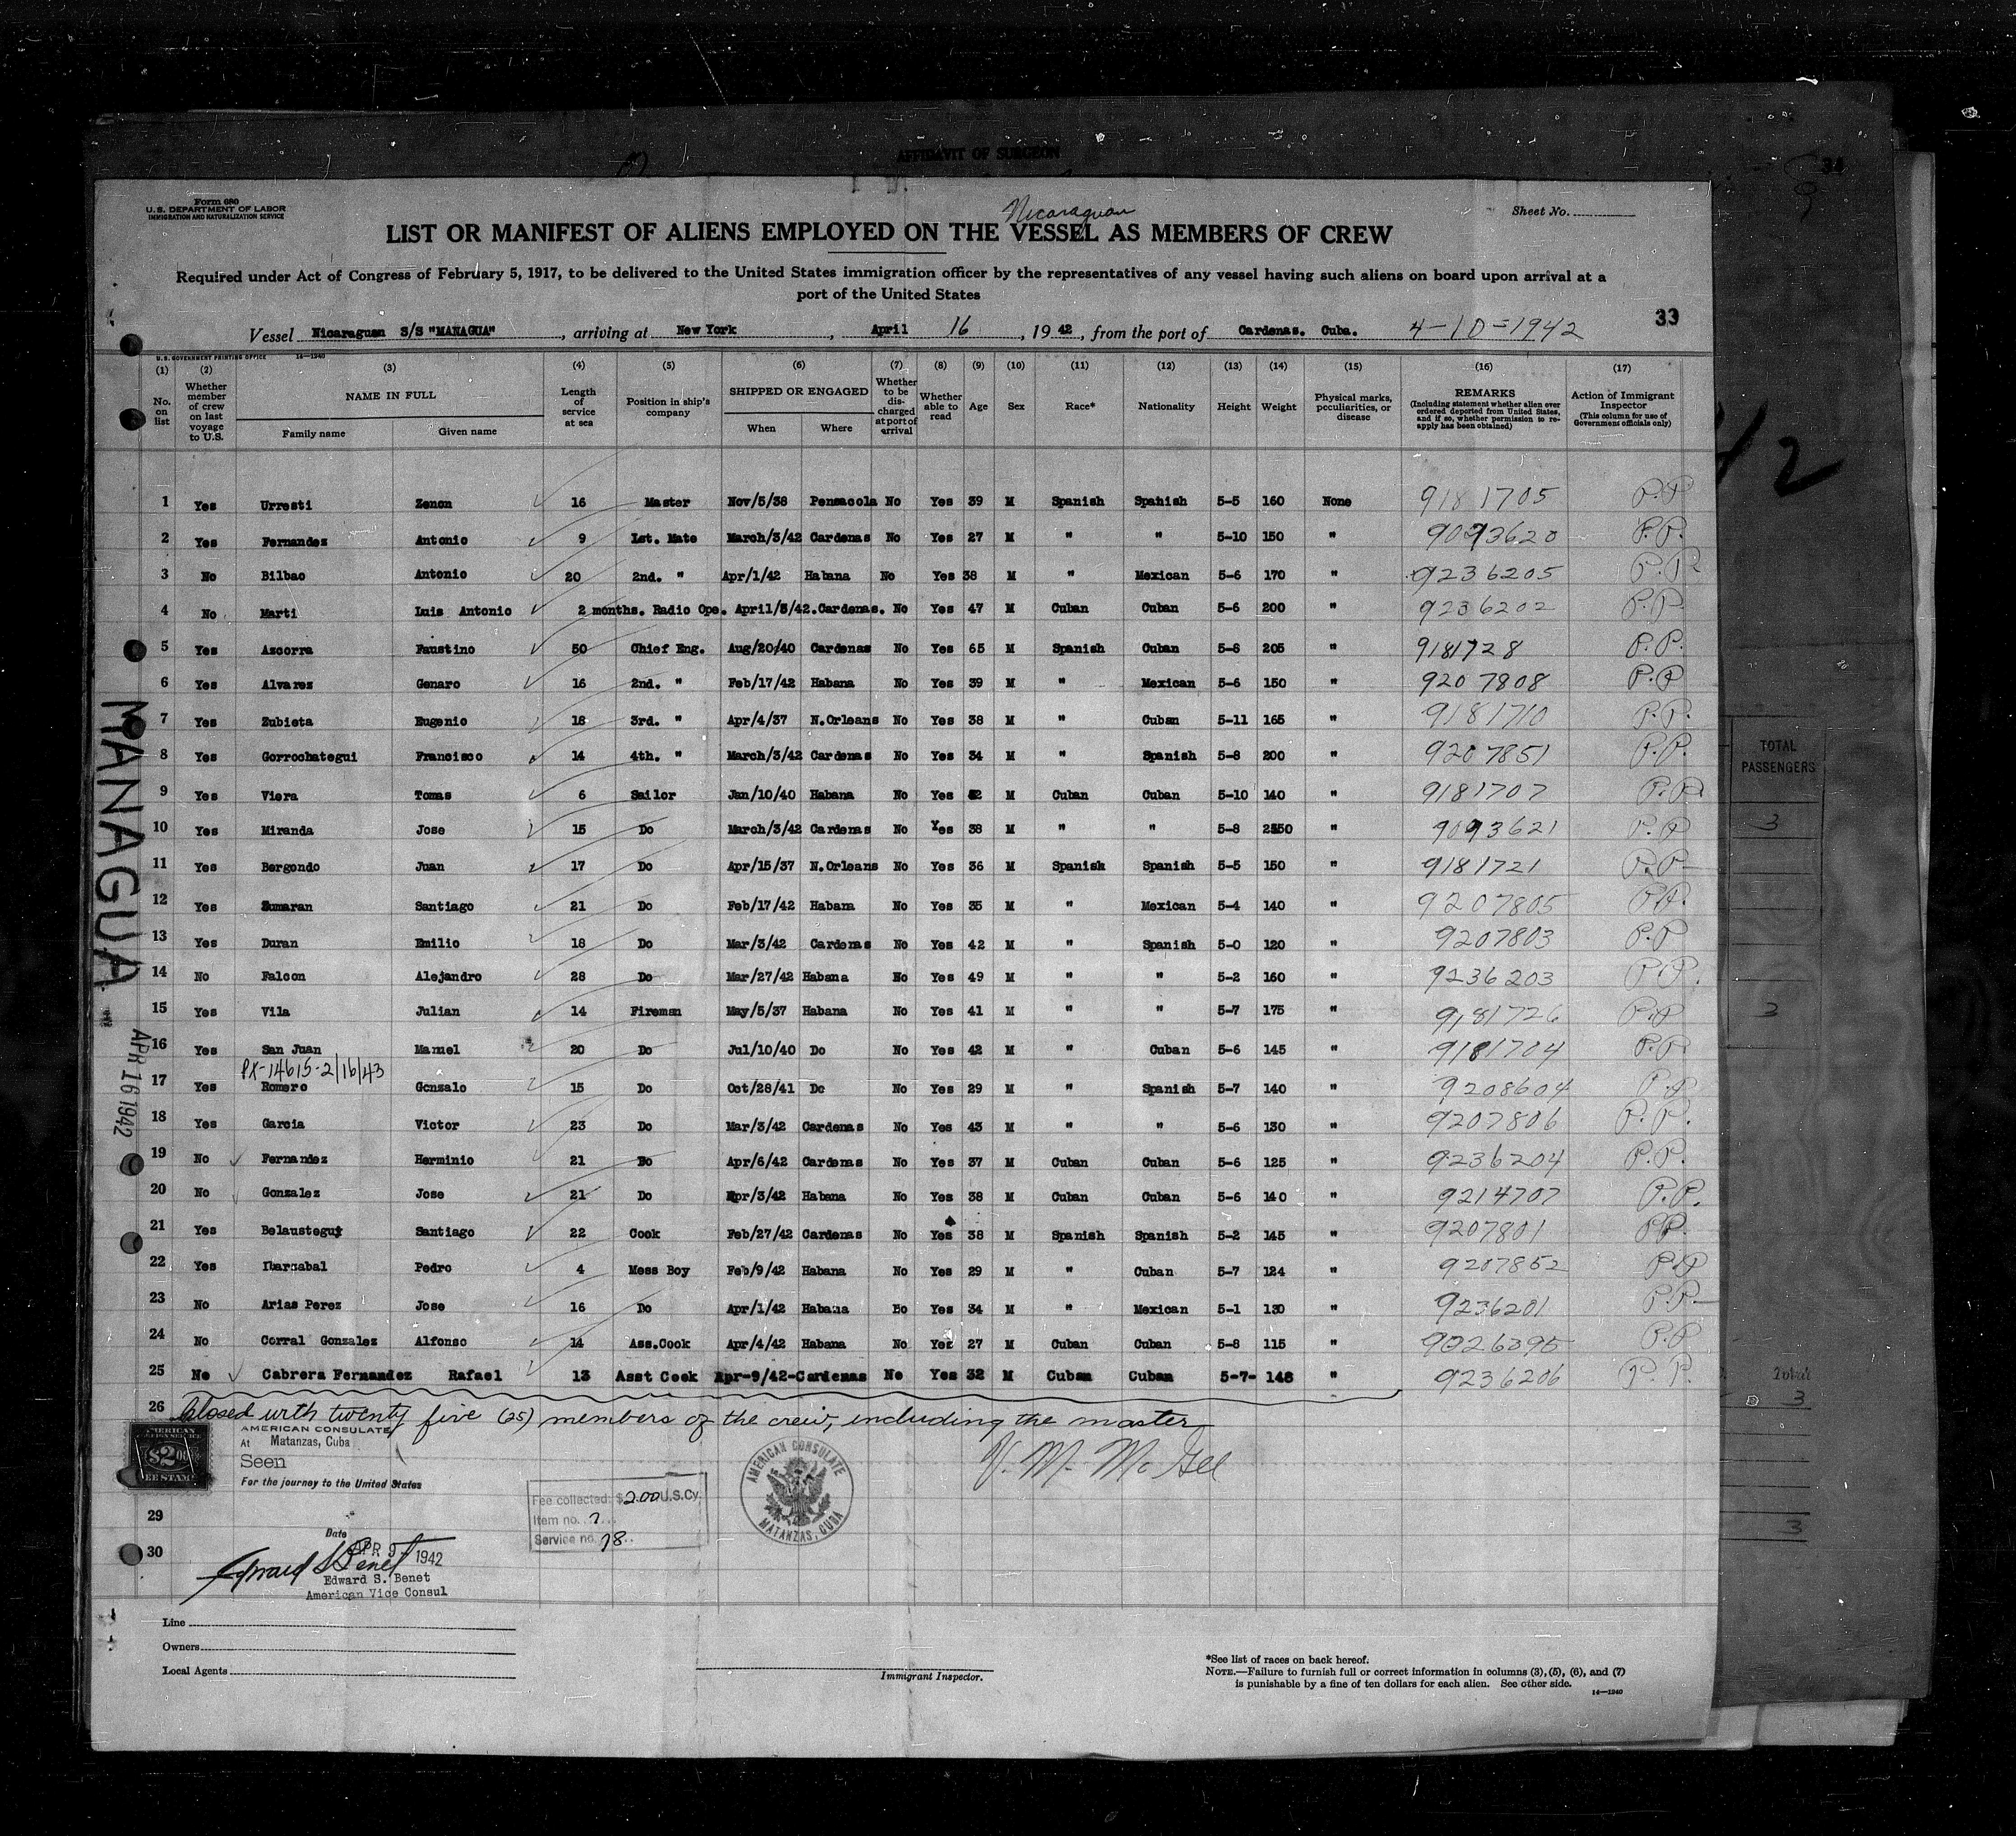 AFFIDAVIT OF SURGEON
34
Form 680
U. S. DEPARTMENT OF LABOR
IMMIGRATION AND NATURALIZATION SERVICE
Sheet No.
Nicaraguan
LIST OR MANIFEST OF ALIENS EMPLOYED ON THE VESSEL AS MEMBERS OF CREW
Required under Act of Congress of February 5, 1917, to be delivered to the United States immigration officer by the representatives of any vessel having such aliens on board upon arrival at a
port of the United States
33
Vessel Nicaraguan S/S "MANAGUA", arriving at New York, April 16, 1942, from the port of Cardenas. Cuba. 4-10-1942
U. S. GOVERNMENT PRINTING OFFICE 14—1940
(1) (2) (3) (4) (5) (6) (7) (8) (9) (10) (11) (12) (13) (14) (15) (16) (17)
No. on list | Whether member of crew on last voyage to U.S. | NAME IN FULL Family name Given name | Length of service at sea | Position in ship's company | SHIPPED OR ENGAGED When Where | Whether to be discharged at port of arrival | Whether able to read | Age | Sex | Race* | Nationality | Height | Weight | Physical marks, peculiarities, or disease | REMARKS (Including statement whether alien ever ordered deported from United States, and if so, whether permission to re-apply has been obtained) | Action of Immigrant Inspector (This column for use of Government officials only)
1 Yes Urresti Zenon 16 Master Nov/5/38 Pensacola No Yes 39 M Spanish Spanish 5-5 160 None 9181705 P.P
2 Yes Fernandez Antonio 9 1st. Mate March/3/42 Cardenas No Yes 27 M " " 5-10 150 " 9093620 P.P.
3 No Bilbao Antonio 20 2nd. " Apr/1/42 Habana No Yes 38 M " Mexican 5-6 170 " 9236205 P.P
4 No Marti Luis Antonio 2 months. Radio Ope. April/3/42. Cardenas. No Yes 47 M Cuban Cuban 5-6 200 " 9236202 P.P.
5 Yes Azcorra Faustino 50 Chief Eng. Aug/20/40 Cardenas No Yes 65 M Spanish Cuban 5-8 205 " 9181728 P.P.
6 Yes Alvarez Genaro 16 2nd. " Feb/17/42 Habana No Yes 39 M " Mexican 5-6 150 " 9207808 P.P
7 Yes Zubieta Eugenio 18 3rd. " Apr/4/37 N.Orleans No Yes 38 M " Cuban 5-11 165 " 9181710 P.P.
8 Yes Gorrochategui Francisco 14 4th. " March/3/42 Cardenas No Yes 34 M " Spanish 5-8 200 " 9207851 P.P.
9 Yes Viera Tomas 6 Sailor Jan/10/40 Habana No Yes M Cuban Cuban 5-10 140 " 9181707 P.P.
10 Yes Miranda Jose 15 Do March/3/42 Cardenas No Yes 38 M " " 5-8 " 9093621 P.P
11 Yes Bergondo Juan 17 Do Apr/15/37 N.Orleans No Yes 36 M Spanish Spanish 5-5 150 " 9181721 P.P
12 Yes Zumaran Santiago 21 Do Feb/17/42 Habana No Yes 35 M " Mexican 5-4 140 " 9207805 P.P.
13 Yes Duran Emilio 18 Do Mar/3/42 Cardenas No Yes 42 M " Spanish 5-0 120 " 9207803 P.P
14 No Falcon Alejandro 28 Do Mar/27/42 Habana No Yes 49 M " " 5-2 160 " 9236203 P.P.
15 Yes Vila Julian 14 Fireman May/5/37 Habana No Yes 41 M " " 5-7 175 " 9181726 P.P
16 Yes San Juan Manuel 20 Do Jul/10/40 Do No Yes 42 M " Cuban 5-6 145 " 9181704 P.P
PX-14615-2/16/43
17 Yes Romero Gonzalo 15 Do Oct/28/41 Do No Yes 29 M " Spanish 5-7 140 " 9208604 P.P
18 Yes Garcia Victor 23 Do Mar/3/42 Cardenas No Yes 43 M " " 5-6 130 " 9207806 P.P.
19 No Fernandez Herminio 21 Do Apr/6/42 Cardenas No Yes 37 M Cuban Cuban 5-6 125 " 9236204 P.P.
20 No Gonzalez Jose 21 Do Apr/3/42 Habana No Yes 38 M Cuban Cuban 5-6 140 " 9214707 P.P.
21 Yes Belaustegui Santiago 22 Cook Feb/27/42 Cardenas No Yes 38 M Spanish Spanish 5-2 145 " 9207801 P.P.
22 Yes Ibarzabal Pedro 4 Mess Boy Feb/9/42 Habana No Yes 29 M " Cuban 5-7 124 " 9207852 P.P
23 No Arias Perez Jose 16 Do Apr/1/42 Habana Bo Yes 34 M " Mexican 5-1 130 " 9236201 P.P.
24 No Corral Gonzalez Alfonso 14 Ass.Cook Apr/4/42 Habana No Yes 27 M Cuban Cuban 5-8 115 " 9026395 P.P
25 No Cabrera Fernandez Rafael 13 Asst Cook Apr-9/42-Cardenas No Yes 32 M Cuban Cuban 5-7- 148 " 9236206 P.P.
26 Closed with twenty five (25) members of the crew, including the master
V. M. McGee
AMERICAN CONSULATE
At Matanzas, Cuba
Seen
For the journey to the United States
$2.00
FEE STAMP
Fee collected: $2.00 U.S.Cy.
Item no. 7
Service no. 78
AMERICAN CONSULATE
MATANZAS, CUBA
29
30
Date APR 9 1942
Edward S. Benet
Edward S. Benet
American Vice Consul
Line
Owners
Local Agents
Immigrant Inspector.
*See list of races on back hereof.
NOTE.—Failure to furnish full or correct information in columns (3), (5), (6), and (7)
is punishable by a fine of ten dollars for each alien. See other side.
14—1940
MANAGUA
APR 16 1942
42
TOTAL
PASSENGERS
3
3
Total
3
3